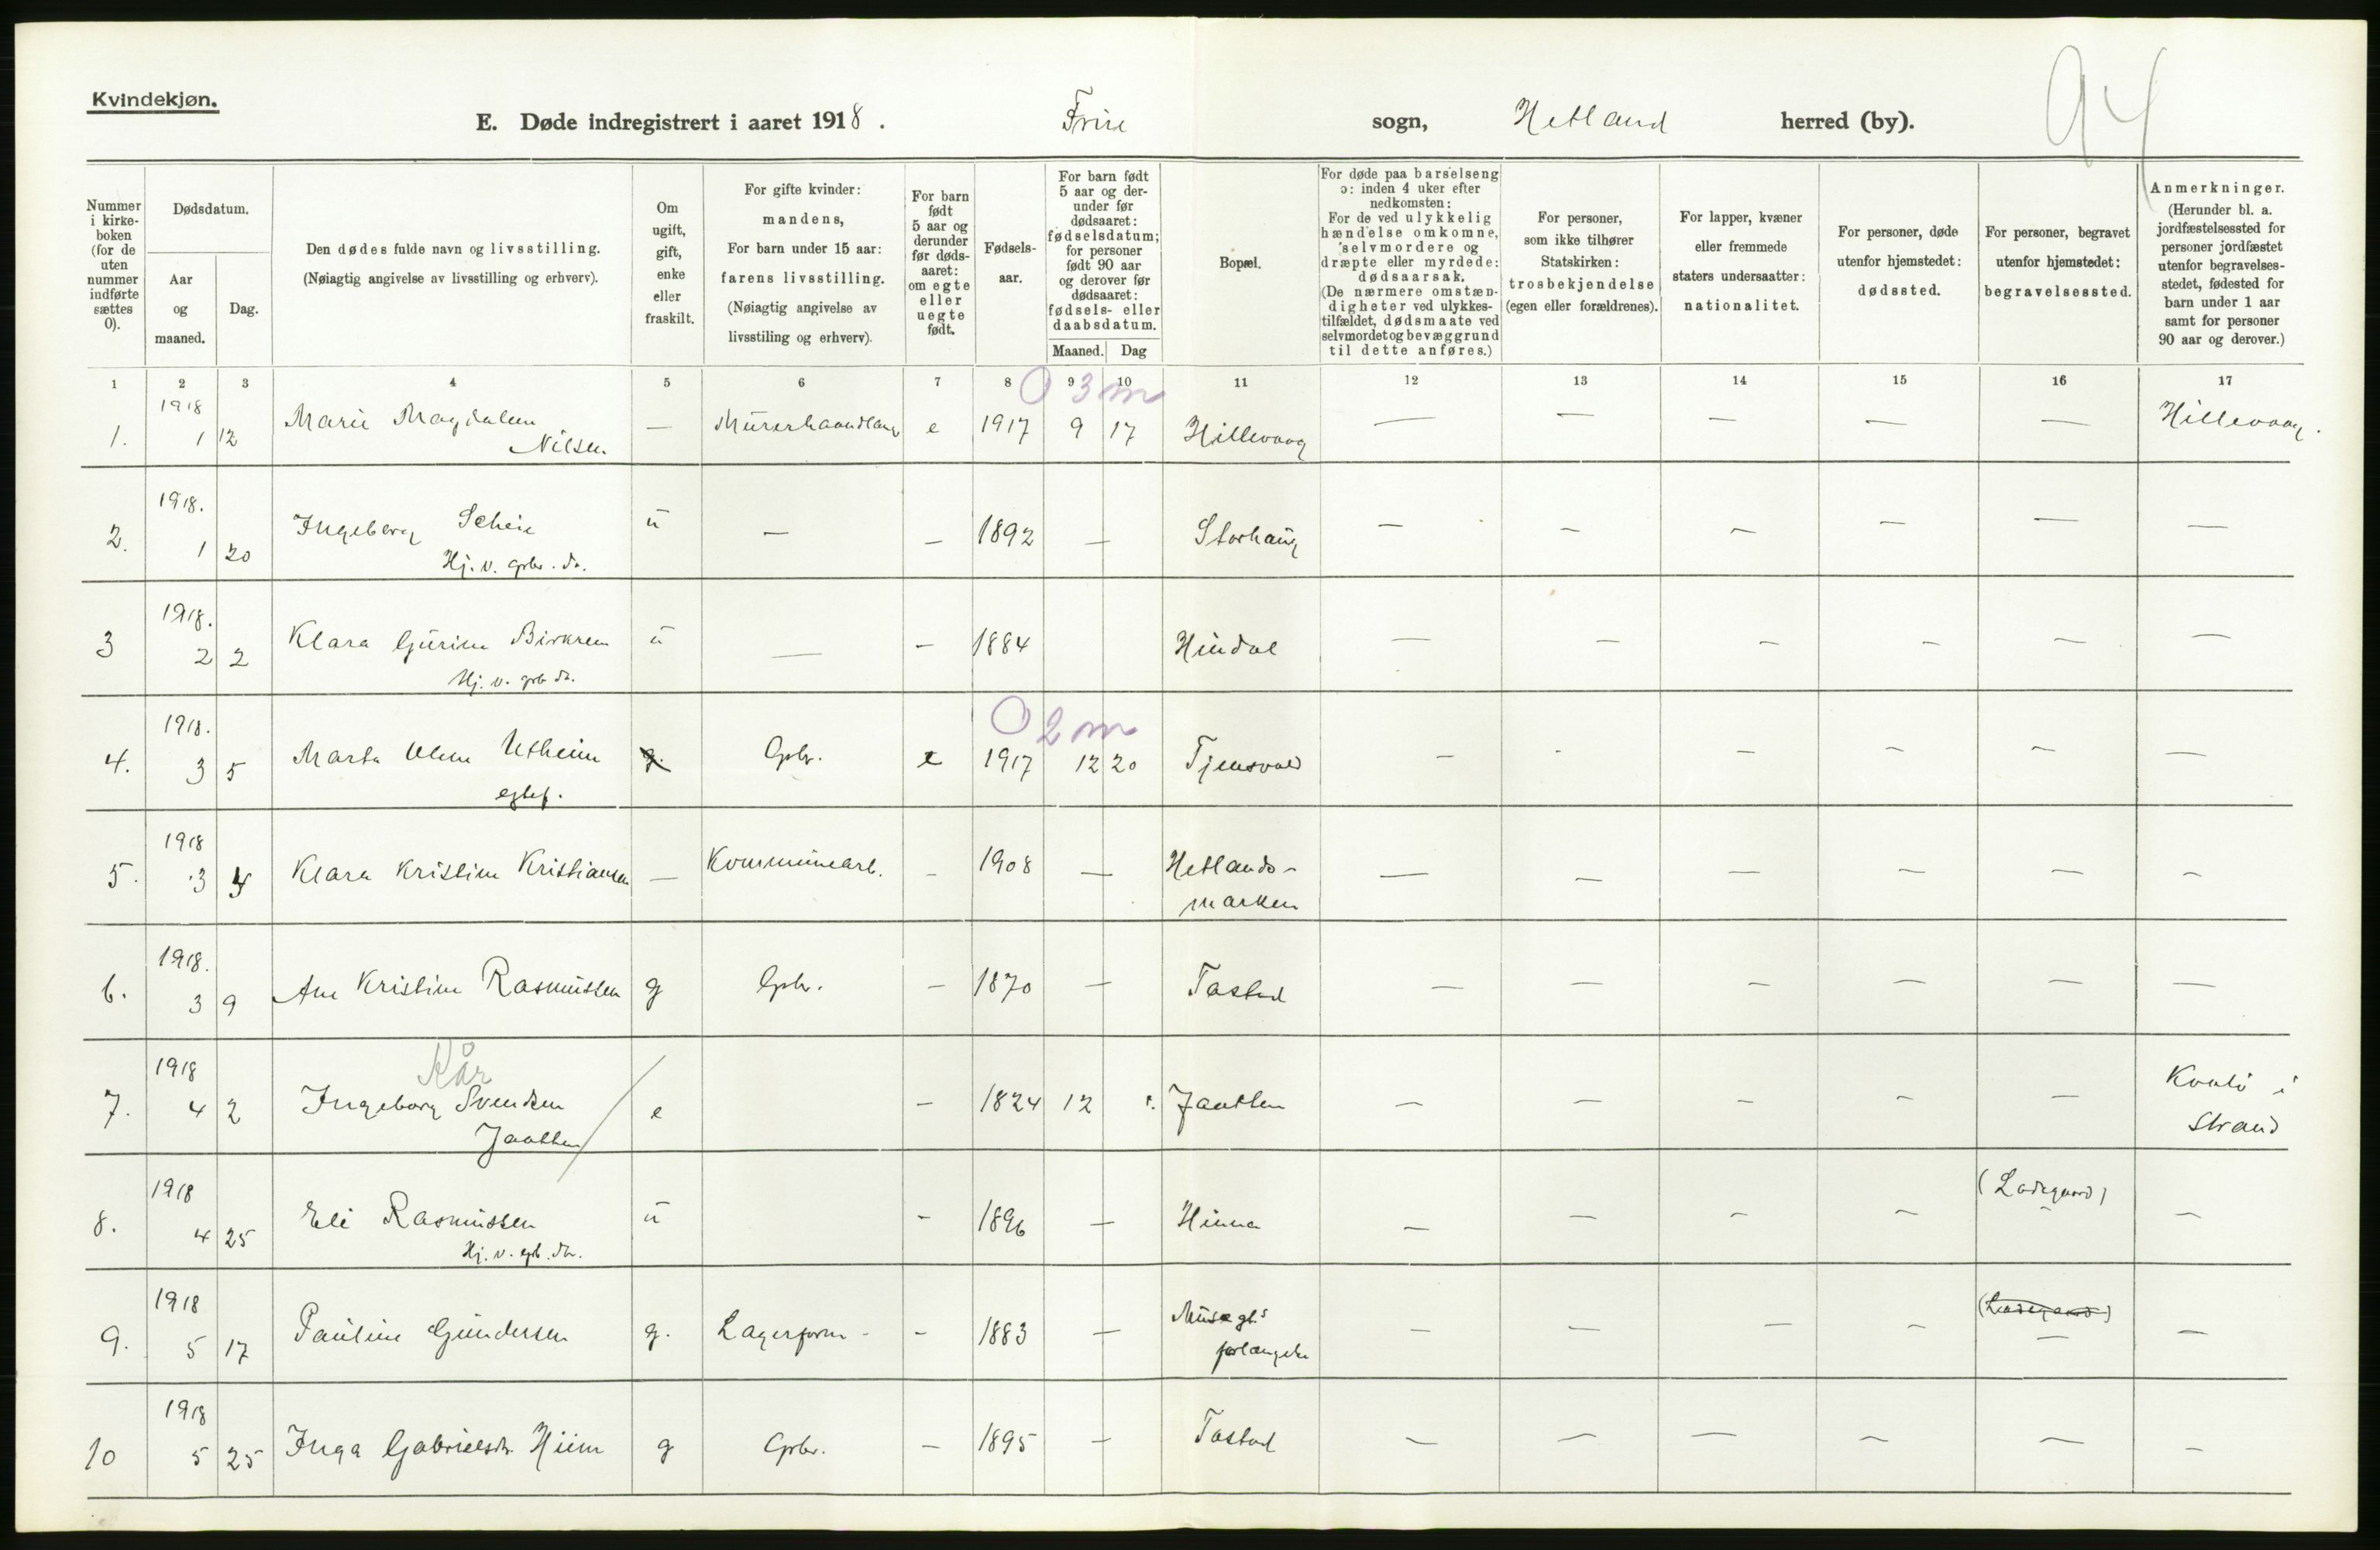 Kvindekjøn.
E. Døde indregistrert i aaret 1918. sogn, Hetland herred (by).
94
Nummer i kirke-boken (for de uten nummer indførte sættes 0).
Dødsdatum.
Aar og maaned.
Dag.
Den dødes fulde navn og livsstilling.
(Nøiagtig angivelse av livsstilling og erhverv).
Om ugift, gift, enke eller fraskilt.
For gifte kvinder: mandens,
For barn under 15 aar: farens livsstilling.
(Nøiagtig angivelse av livsstiling og erhverv).
For barn født 5 aar og derunder før døds-aaret: om egte eller uegte født.
Fødsels-aar.
For barn født 5 aar og der-under før dødsaaret: fødselsdatum; for personer født 90 aar og derover før dødsaaret: fødsels- eller daabsdatum.
Maaned. Dag
Bopæl.
For døde paa barselseng ɔ: inden 4 uker efter nedkomsten:
For de ved ulykkelig hændelse omkomne, selvmordere og dræpte eller myrdede: dødsaarsak.
(De nærmere omstæn-digheter ved ulykkes-tilfældet, dødsmaate ved selvmordet og bevæggrund til dette anføres.)
For personer, som ikke tilhører Statskirken: trosbekjendelse (egen eller forældrenes).
For lapper, kvæner eller fremmede staters undersaatter: nationalitet.
For personer, døde utenfor hjemstedet: dødssted.
For personer, begravet utenfor hjemstedet: begravelsessted.
Anmerkninger.
(Herunder bl. a. jordfæstelsessted for personer jordfæstet utenfor begravelses-stedet, fødested for barn under 1 aar samt for personer 90 aar og derover.)
1 2 3 4 5 6 7 8 9 10 11 12 13 14 15 16 17
0 3 m
1. 1918 1 12 Marie Magdalene Nilsen — Murerhaandlang e 1917 9 17 Hillevaag — — — — — Hillevaag.
2. 1918. 1 20 Ingeborg Scheie Hj. v. gbr. dr. u — — 1892 — Storhaug — — — — — —
3 1918. 2 2 Klara Gurine Birkrem Hj. v. gbr dr. u — — 1884 Hindal — — — — — —
0 2 m
4. 1918. 3 5 Marta Utheim egtef. g. Gbr. e 1917 12 20 Tjensvold — - — — — —
5. 1918 3 4 Klara Kristine Kristiansen — Kommunearb. — 1908 — Hetlands-marken — — — — — —
6. 1918. 3 9 Ane Kristine Rasmussen g Gbr. — 1870 — Tasted — — — — — —
Kår
7. 1918 4 2 Ingeborg Svendsen Jaatten e — 1824 12 Jaatten — — — — — i Strand
8. 1918 4 25 Eli Rasmussen Hj. v. gb. dtr. u — 1896 — Hinna — — — — (Ladegaard) — —
9. 1918 5 17 Pauline Gundersen g. Lagerform - — 1883 — Musegt.s forlængelse — — — — (Ladegaard) — —
10 1918 5 25 Inga Gabrielsdtr. Hiim g Gbr. — 1895 — Tastad — — — — — —